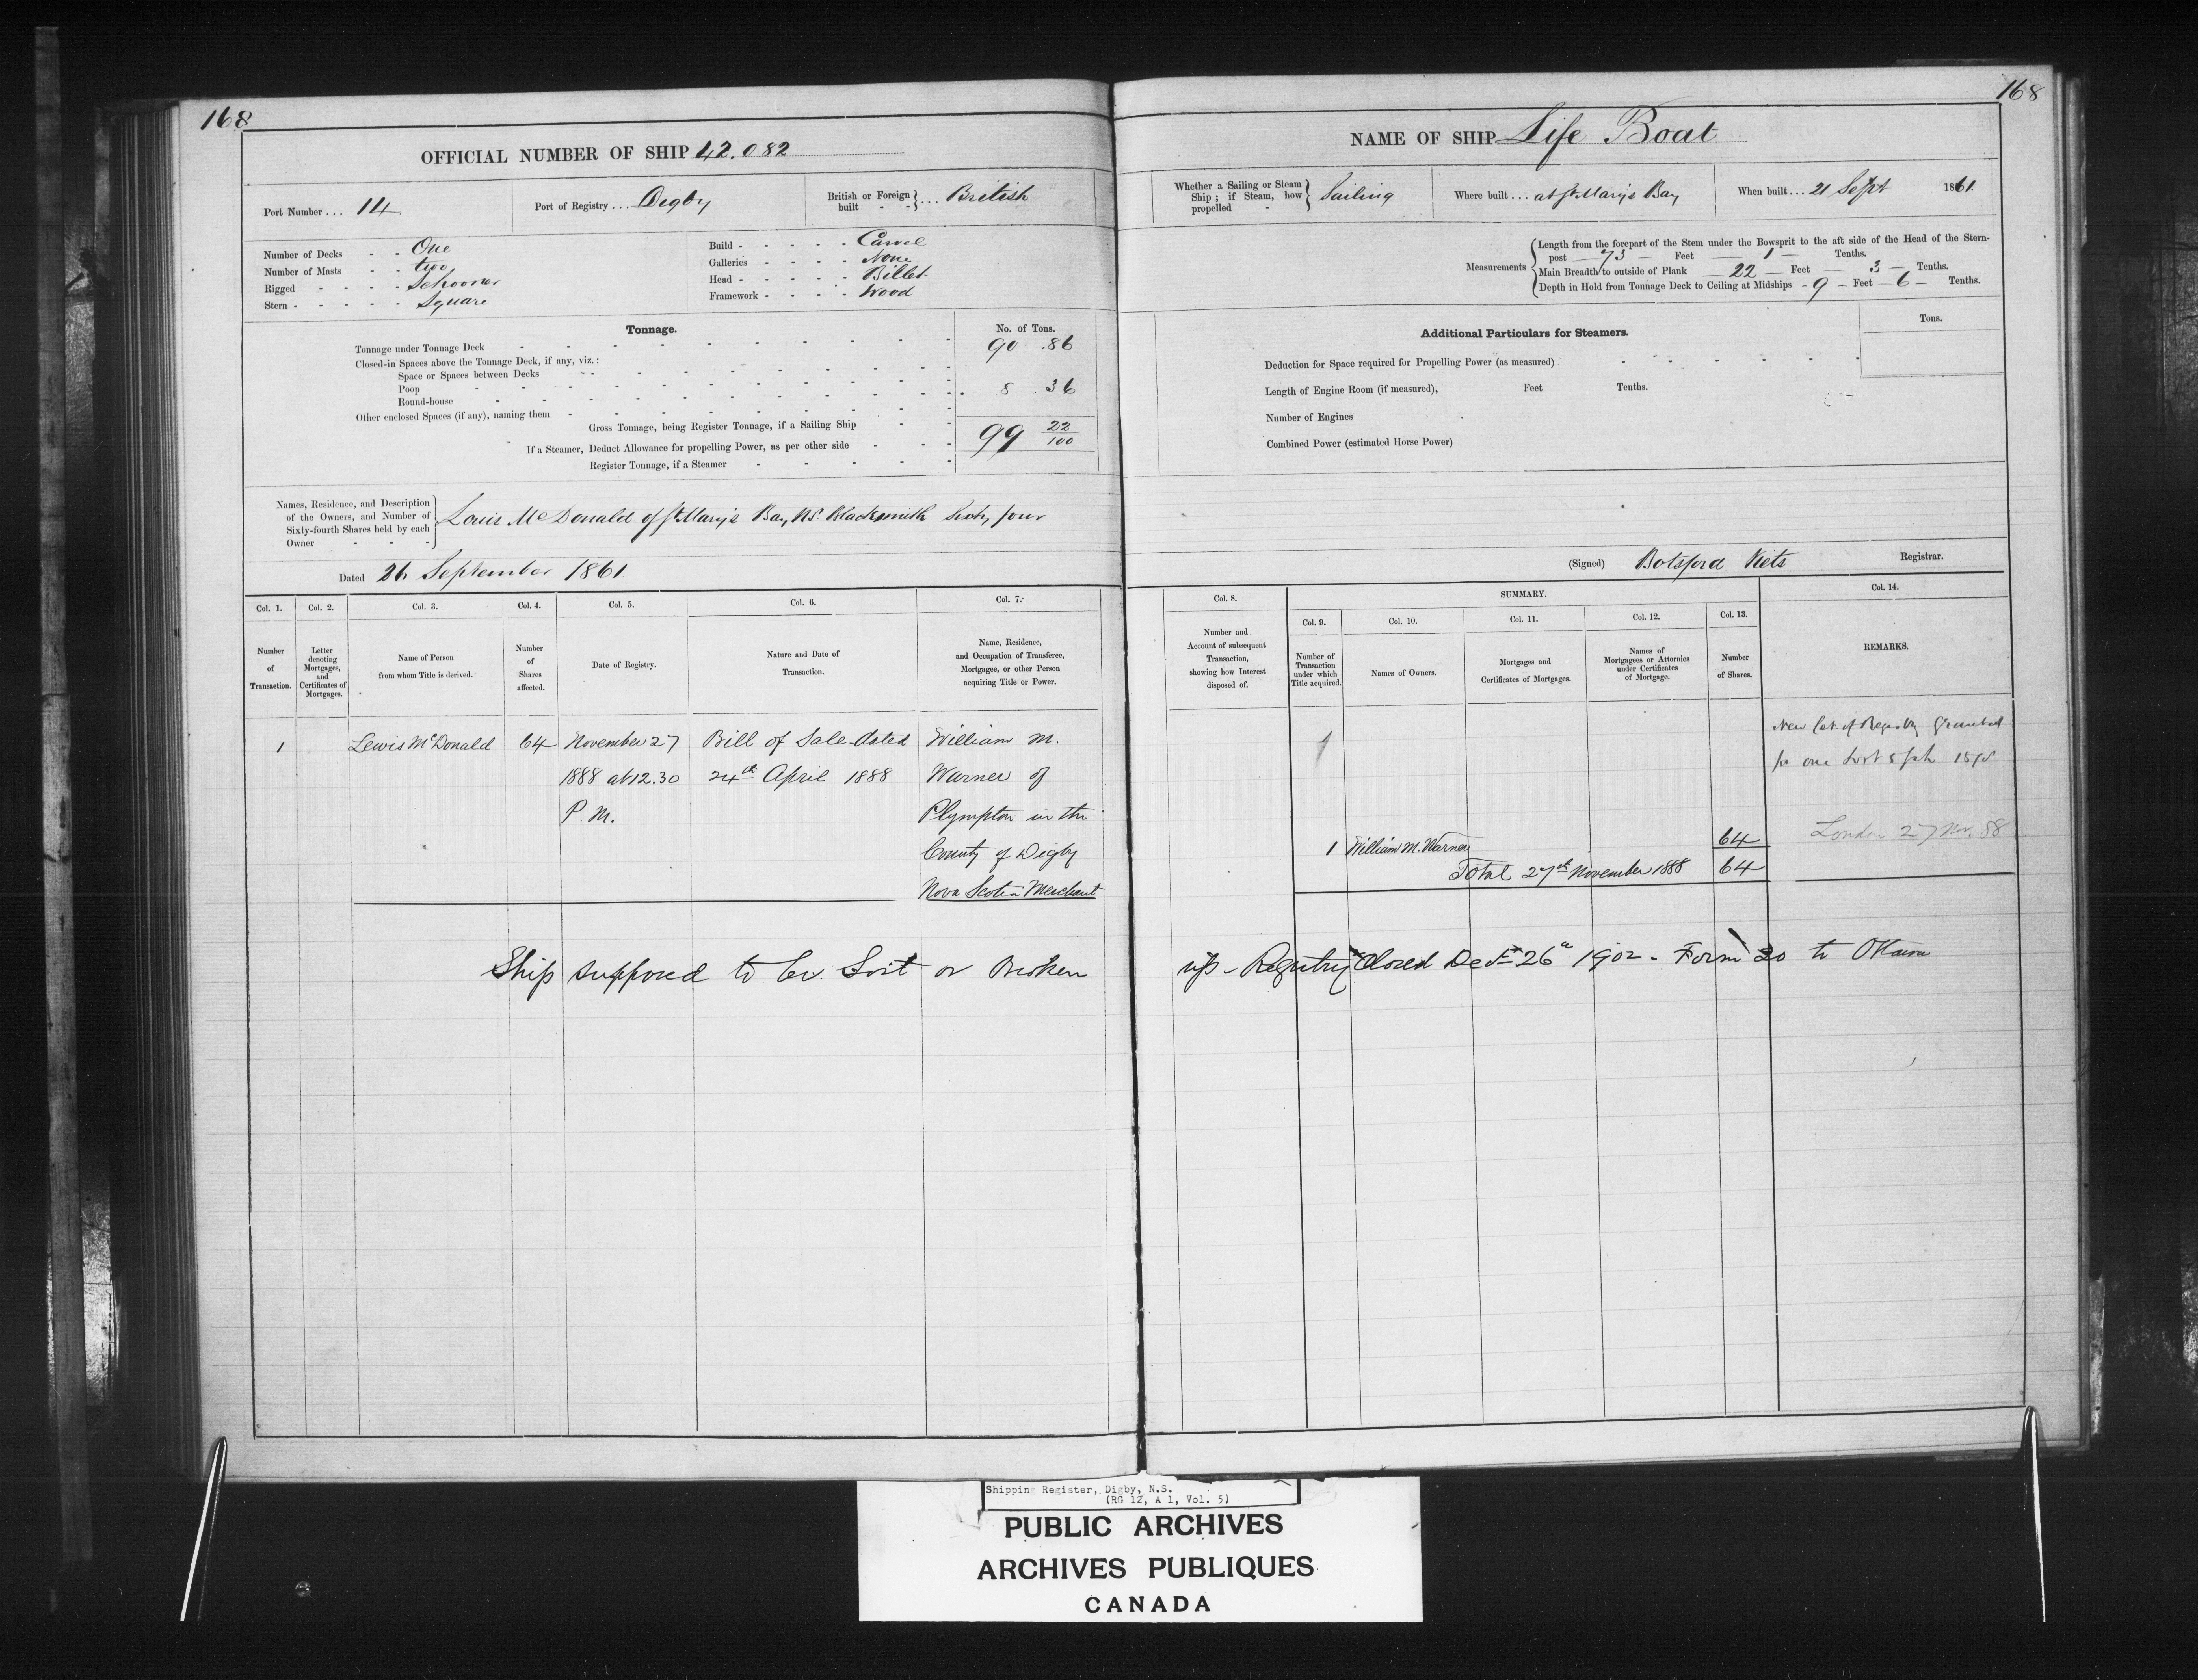 168
168
OFFICIAL NUMBER OF SHIP 42.082
NAME OF SHIP Life Boat
Port Number ... 14
Port of Registry ... Digby
British or Foreign built - - } ... British
Whether a Sailing or Steam Ship ; if Steam, how propelled - } Sailing
Where built ... at St. Mary's Bay
When built ... 21 Sept 1861.
Number of Decks - - One
Number of Masts - - two
Rigged - - - - Schooner
Stern - - - - - Square
Build - - - - - Carvel
Galleries - - - - None
Head - - - - - Billet
Framework - - - - Wood
Measurements
Length from the forepart of the Stem under the Bowsprit to the aft side of the Head of the Stern-
post — 73 — Feet — 1 — Tenths.
Main Breadth to outside of Plank — 22 — Feet — 3 — Tenths.
Depth in Hold from Tonnage Deck to Ceiling at Midships - 9 - Feet - 6 - Tenths.
Tonnage.
No. of Tons.
Tonnage under Tonnage Deck 90 .86
Closed-in Spaces above the Tonnage Deck, if any, viz. :
Space or Spaces between Decks
Poop 8 . 36
Round-house
Other enclosed Spaces (if any), naming them
Gross Tonnage, being Register Tonnage, if a Sailing Ship 99 22/100
If a Steamer, Deduct Allowance for propelling Power, as per other side
Register Tonnage, if a Steamer
Additional Particulars for Steamers.
Tons.
Deduction for Space required for Propelling Power (as measured)
Length of Engine Room (if measured), Feet Tenths.
Number of Engines
Combined Power (estimated Horse Power)
Names, Residence, and Description
of the Owners, and Number of
Sixty-fourth Shares held by each
Owner - - -
Louis McDonald of St. Mary's Bay N.S. Blacksmith Sixty four
Dated 26 September 1861
(Signed) Botsford Viets Registrar.
Col. 1.
Number of Transaction.
Col. 2.
Letter denoting Mortgages, and Certificates of Mortgages.
Col. 3.
Name of Person from whom Title is derived.
Col. 4.
Number of Shares affected.
Col. 5.
Date of Registry.
Col. 6.
Nature and Date of Transaction.
Col. 7.
Name, Residence, and Occupation of Transferee, Mortgagee, or other Person acquiring Title or Power.
Col. 8.
Number and Account of subsequent Transaction, showing how Interest disposed of.
SUMMARY.
Col. 9.
Number of Transaction under which Title acquired.
Col. 10.
Names of Owners.
Col. 11.
Mortgages and Certificates of Mortgages.
Col. 12.
Names of Mortgagees or Attornies under Certificates of Mortgage.
Col. 13.
Number of Shares.
Col. 14.
REMARKS.
1
Lewis McDonald
64
November 27
1888 at 12.30
P. M.
Bill of Sale dated
24th April 1888
William M.
Warner of
Plympton in the
County of Digby
Nova Scotia Merchant
1
New Cert. of Registry Granted
for one Lost 5
1 William M. Warner 64
Total 27th November 1888 64
London 27 Nov. 88
Ship supposed to be Lost or Broken up - Registry Closed Dec 26th 1902 - Form 20 to Ottawa
Shipping Register, Digby, N.S.
(RG 12, A 1, Vol. 5)
PUBLIC ARCHIVES
ARCHIVES PUBLIQUES
CANADA